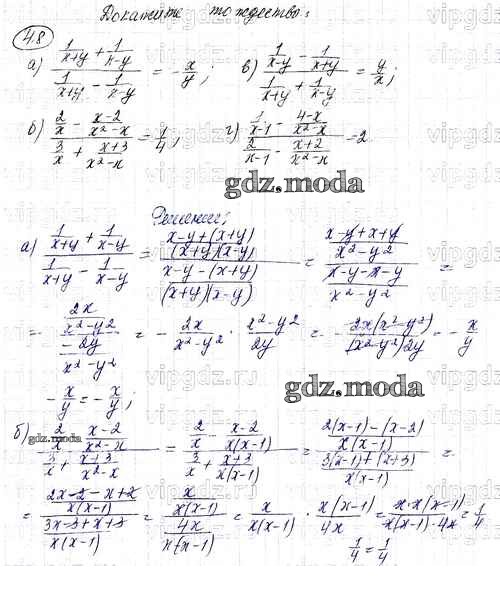 Докажите тождество:
48
а) (1/(x+y) + 1/(x-y)) / (1/(x+y) - 1/(x-y)) = -x/y; в) (1/(x-y) - 1/(x+y)) / (1/(x+y) + 1/(x-y)) = y/x;
б) (2/x - (x-2)/(x²-x)) / (3/x + (x+3)/(x²-x)) = 1/4; г) (1/(x-1) - (4-x)/(x²-x)) / (2/(x-1) - (x+2)/(x²-x)) = 2
gdz.moda
Решение:
а) (1/(x+y) + 1/(x-y)) / (1/(x+y) - 1/(x-y)) = ((x-y+(x+y))/((x+y)(x-y))) / ((x-y-(x+y))/((x+y)(x-y))) = ((x-y+x+y)/(x²-y²)) / ((x-y-x-y)/(x²-y²)) =
= (2x/(x²-y²)) / (-2y/(x²-y²)) = - 2x/(x²-y²) · (x²-y²)/2y = - 2x(x²-y²)/((x²-y²)2y) = - x/y
- x/y = - x/y;
gdz.moda
б) (2/x - (x-2)/(x²-x)) / (3/x + (x+3)/(x²-x)) = (2/x - (x-2)/(x(x-1))) / (3/x + (x+3)/(x(x-1))) = ((2(x-1)-(x-2))/(x(x-1))) / ((3(x-1)+(x+3))/(x(x-1))) =
gdz.moda
= ((2x-2-x+2)/(x(x-1))) / ((3x-3+x+3)/(x(x-1))) = (x/(x(x-1))) / (4x/(x(x-1))) = x/(x(x-1)) · x(x-1)/4x = x·x(x-1)/(x(x-1)·4x) = 1/4
1/4 = 1/4
vipgdz.ru